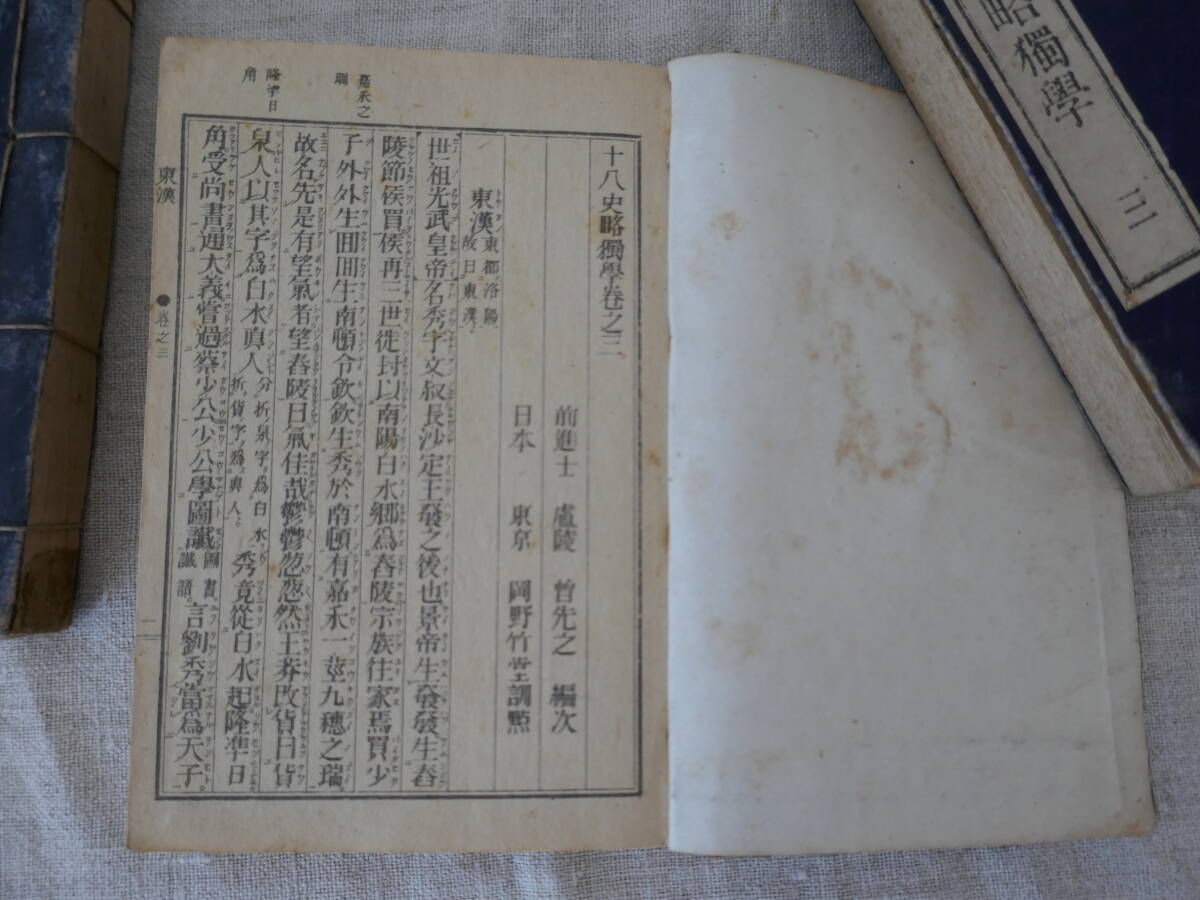 略獨學 三
十八史略獨學卷之三
前進士 盧陵 曾先之 編次
日本 東京 岡野竹堂訓點
東漢 東都洛陽故曰東漢
世祖光武皇帝名秀字文叔長沙定王發之後也景帝生發發生舂
陵節侯買侯再三世徙封以南陽白水鄉爲舂陵宗族往家焉買少
子外外生囬囬生南頓令欽欽生秀於南頓有嘉禾一莖九穗之瑞
故名先是有望氣者望舂陵曰氣佳哉鬱鬱葱葱然王莽改貨曰貨
泉人以其字爲白水眞人 分折泉字爲白水折貨字爲眞人。 秀竟從白水起隆準日
角受尚書通大義嘗過蔡少公少公學圖讖 圖書讖諸 言劉秀當爲天子
嘉禾之
瑞
隆準日
角
東漢
●卷之三
一